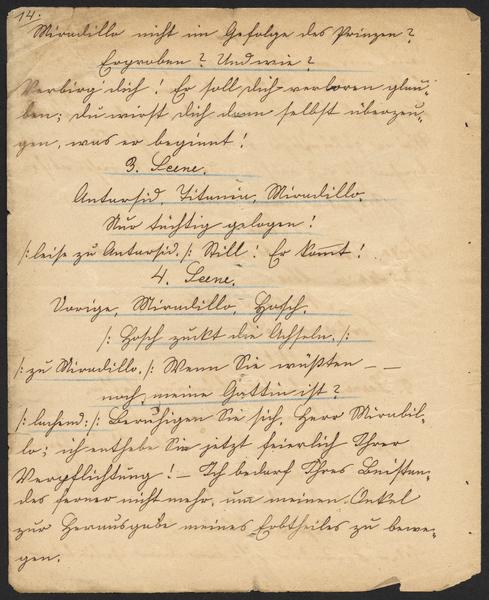 14.
Miradillo nicht im Gefolge des Prinzen?
Erproben? Und wie?
Verbirg dich! Er soll dich verloren glau-
ben; du wirst dich dann selbst überzeu-
gen, was er beginnt!
3. Scene.
Antarsid, Titania, Miradillo.
Nur tüchtig gelogen!
/: leise zu Antarsid. :/ Still! Er kom̅t!
4. Scene.
Vorige, Miradillo, Hosch.
/: Hosch zuckt die Achseln. :/
/: zu Miradillo. :/ Wenn Sie wüßten – –
noch meine Gattin ist?
/: lachend: :/ Beruhigen Sie sich, Herr Mirabil-
lo; ich enthebe Sie jetzt feierlich Ihrer
Verpflichtung! – Ich bedarf Ihres Beistan-
des ferner nicht mehr, um meinen Onkel
zur Herausgabe meines Erbtheiles zu bewe-
gen.